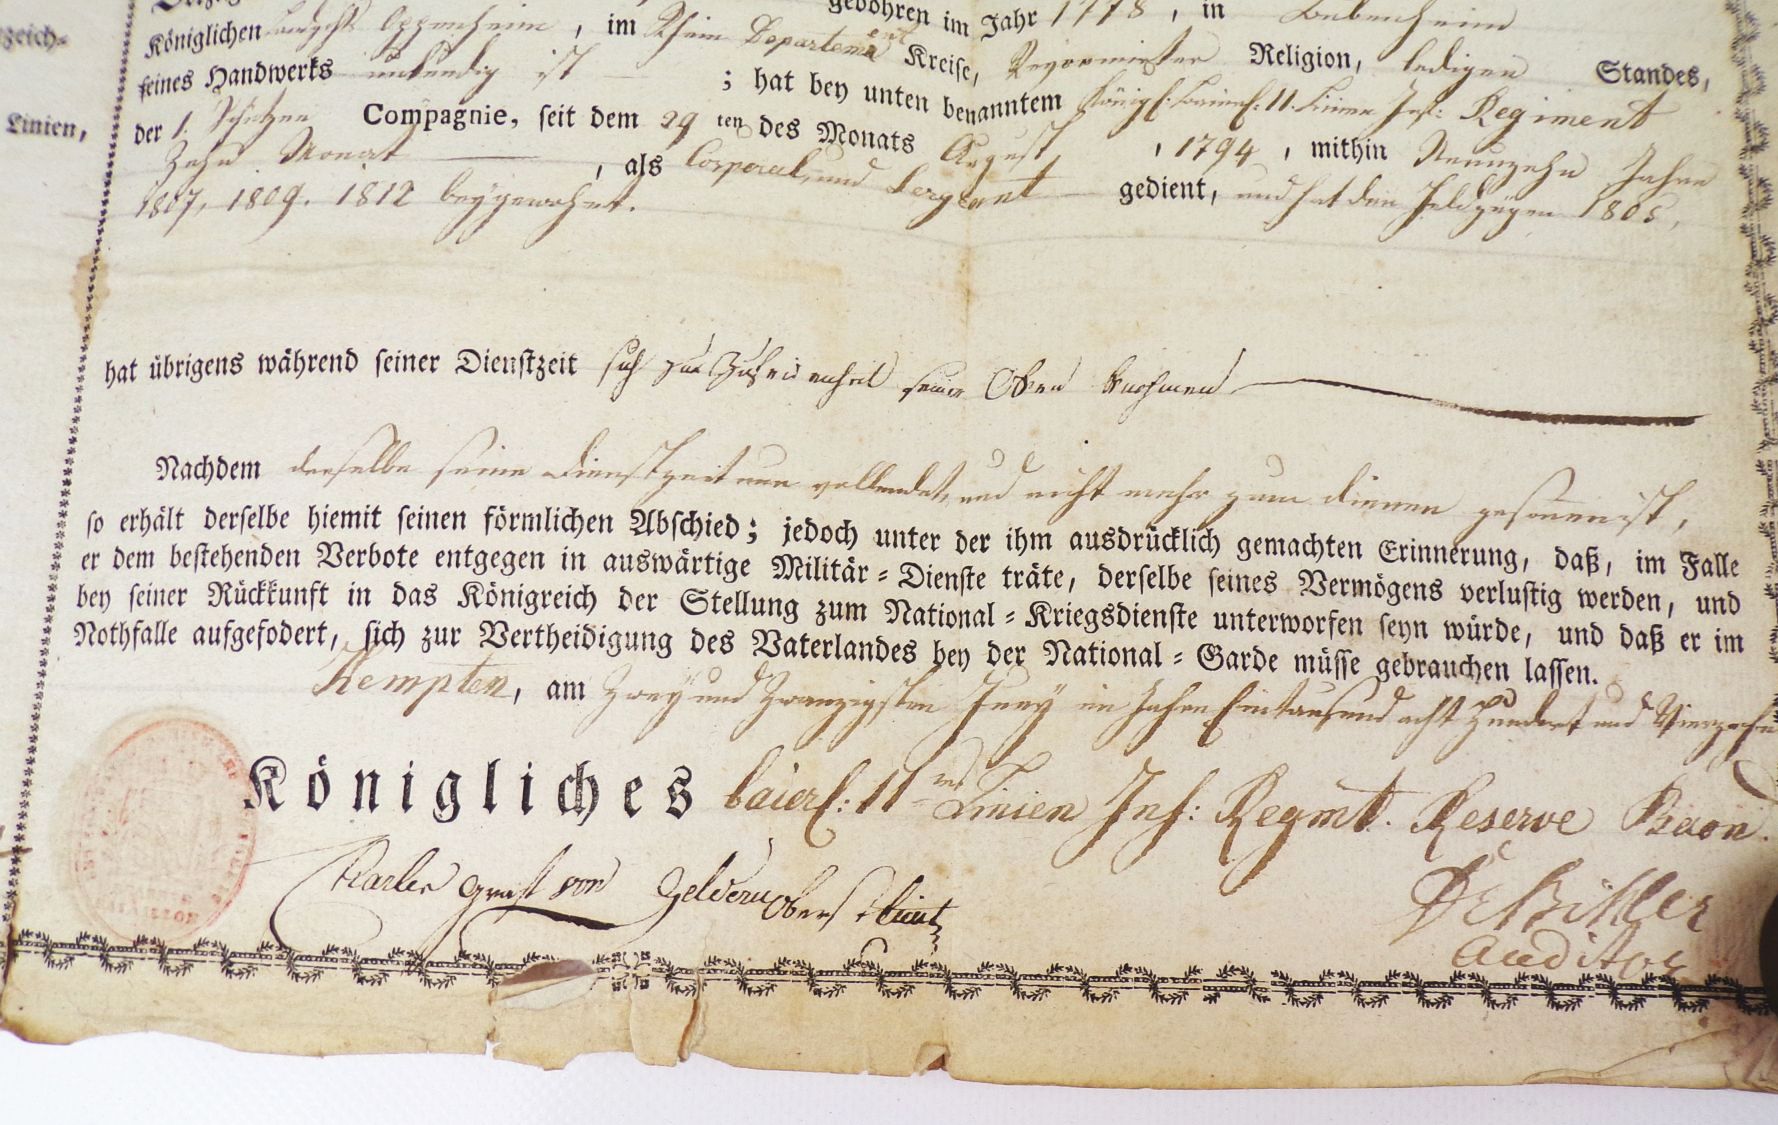 gebohren im Jahr 1778, in Bubenheim
Königlichen Landgchts Oppenheim, im Rhein Departement Kreise, Reformirter Religion, ledigen Standes,
zeich-
seines Handwerks unkundig ist ; hat bey unten benanntem Königl. baierisch. 11. Linien Inf: Regiment
Linien,
der 1. Schützen Compagnie, seit dem 29 ten des Monats August, 1794, mithin Neunzehn Jahre
Zehn Monat, als Corporal, und Sergeant gedient, und hat den Feldzügen 1805,
1807, 1809. 1812 beygewohnt.
hat übrigens während seiner Dienstzeit sich zur Zufriedenheit seiner Obern benohmen
Nachdem derselbe seine Dienstzeit nun vollendet, und nicht mehr zum dienen gesonnen ist,
so erhält derselbe hiemit seinen förmlichen Abschied; jedoch unter der ihm ausdrücklich gemachten Erinnerung, daß, im Falle
er dem bestehenden Verbote entgegen in auswärtige Militär-Dienste träte, derselbe seines Vermögens verlustig werden, und
bey seiner Rückkunft in das Königreich der Stellung zum National-Kriegsdienste unterworfen seyn würde, und daß er im
Nothfalle aufgefodert, sich zur Vertheidigung des Vaterlandes bey der National-Garde müsse gebrauchen lassen.
Kempten, am Zwey und Zwanzigsten Juny im Jahre Eintausend acht Hundert und Vierzehn
Königliches baier: 11tes Linien Inf: Regmt. Reserve Baon.
Graf von Geldern Oberstlieut
Auditor